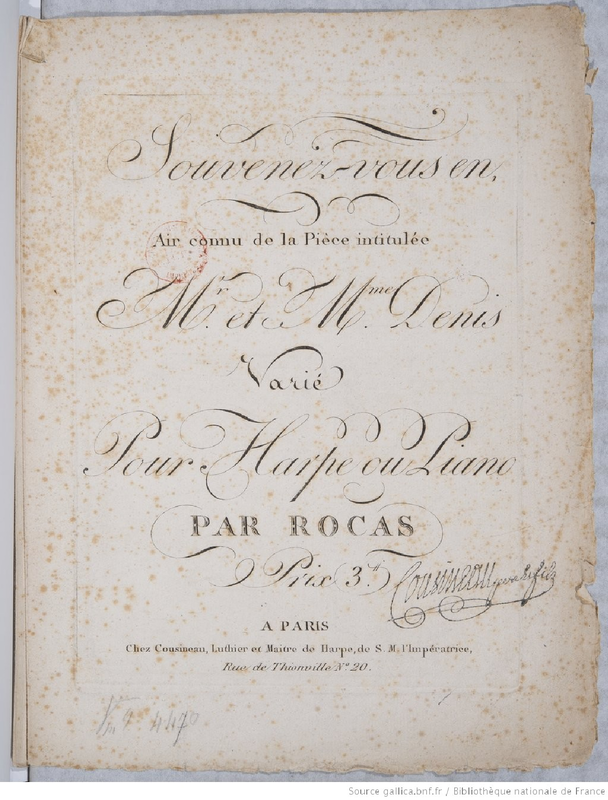 Souvenez-vous en,
Air connu de la Pièce intitulée
Mr. et Mme. Denis
Varié
Pour Harpe ou Piano
PAR ROCAS
Prix 3.tt
Cousineau pere et fils
A PARIS
Chez Cousineau, Luthier et Maitre de Harpe, de S. M. l'Impératrice,
Rue de Thionville No. 20.
4470
Source gallica.bnf.fr / Bibliothèque nationale de France